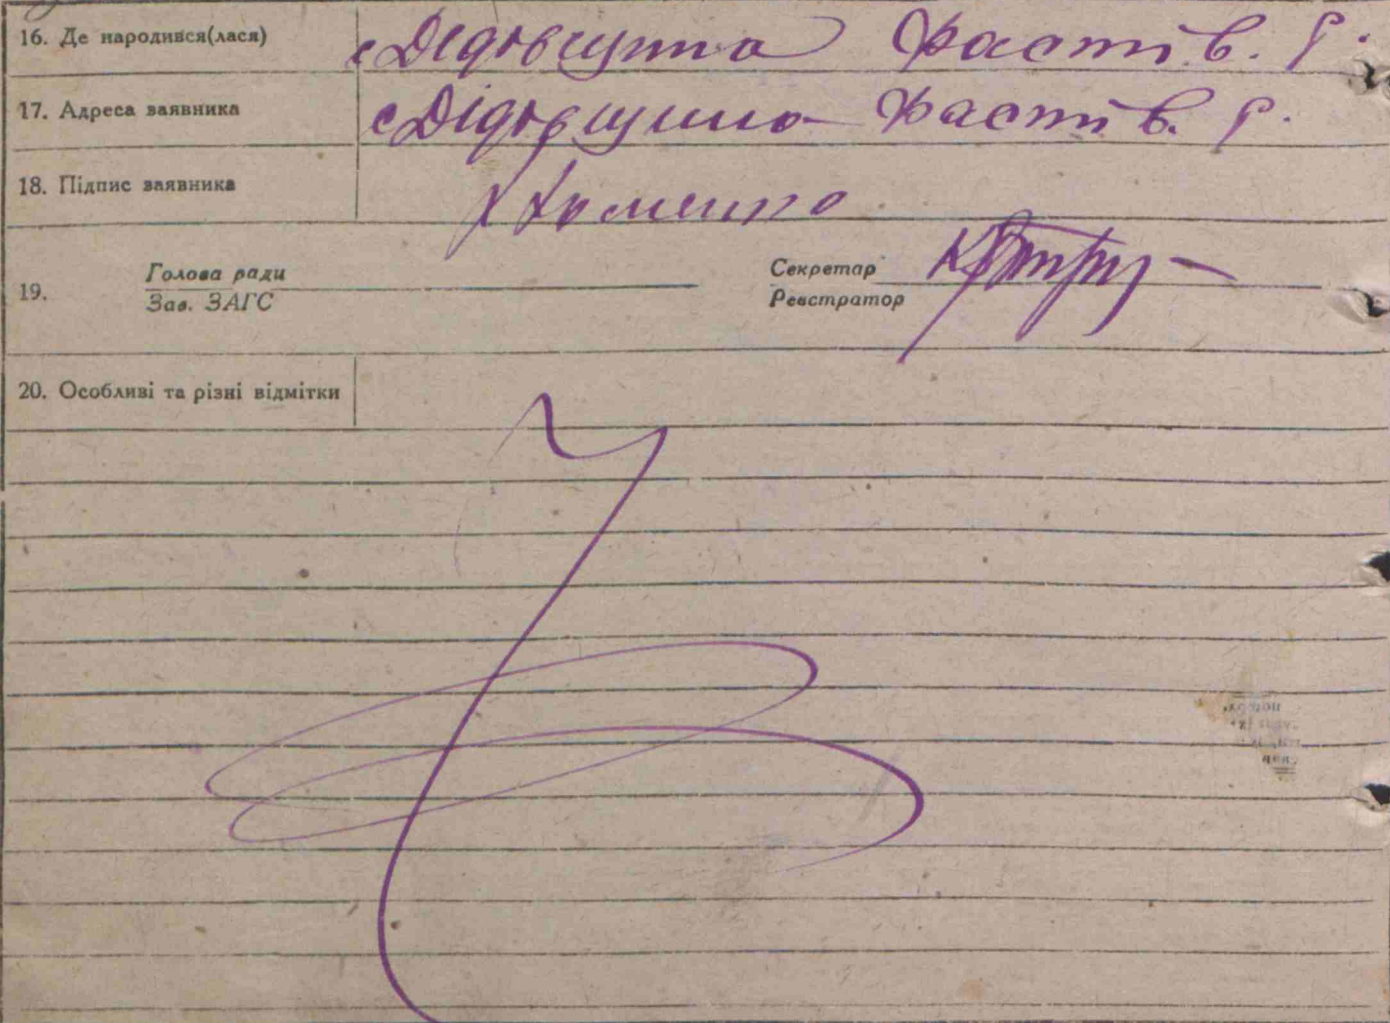 16. Де народився(лася) с Дідівщина Фастів. р.
17. Адреса заявника с Дідівщина Фастів. р.
18. Підпис заявника Хоменко
19. Голова ради
Зав. ЗАГС
Секретар
Реєстратор
20. Особливі та різні відмітки